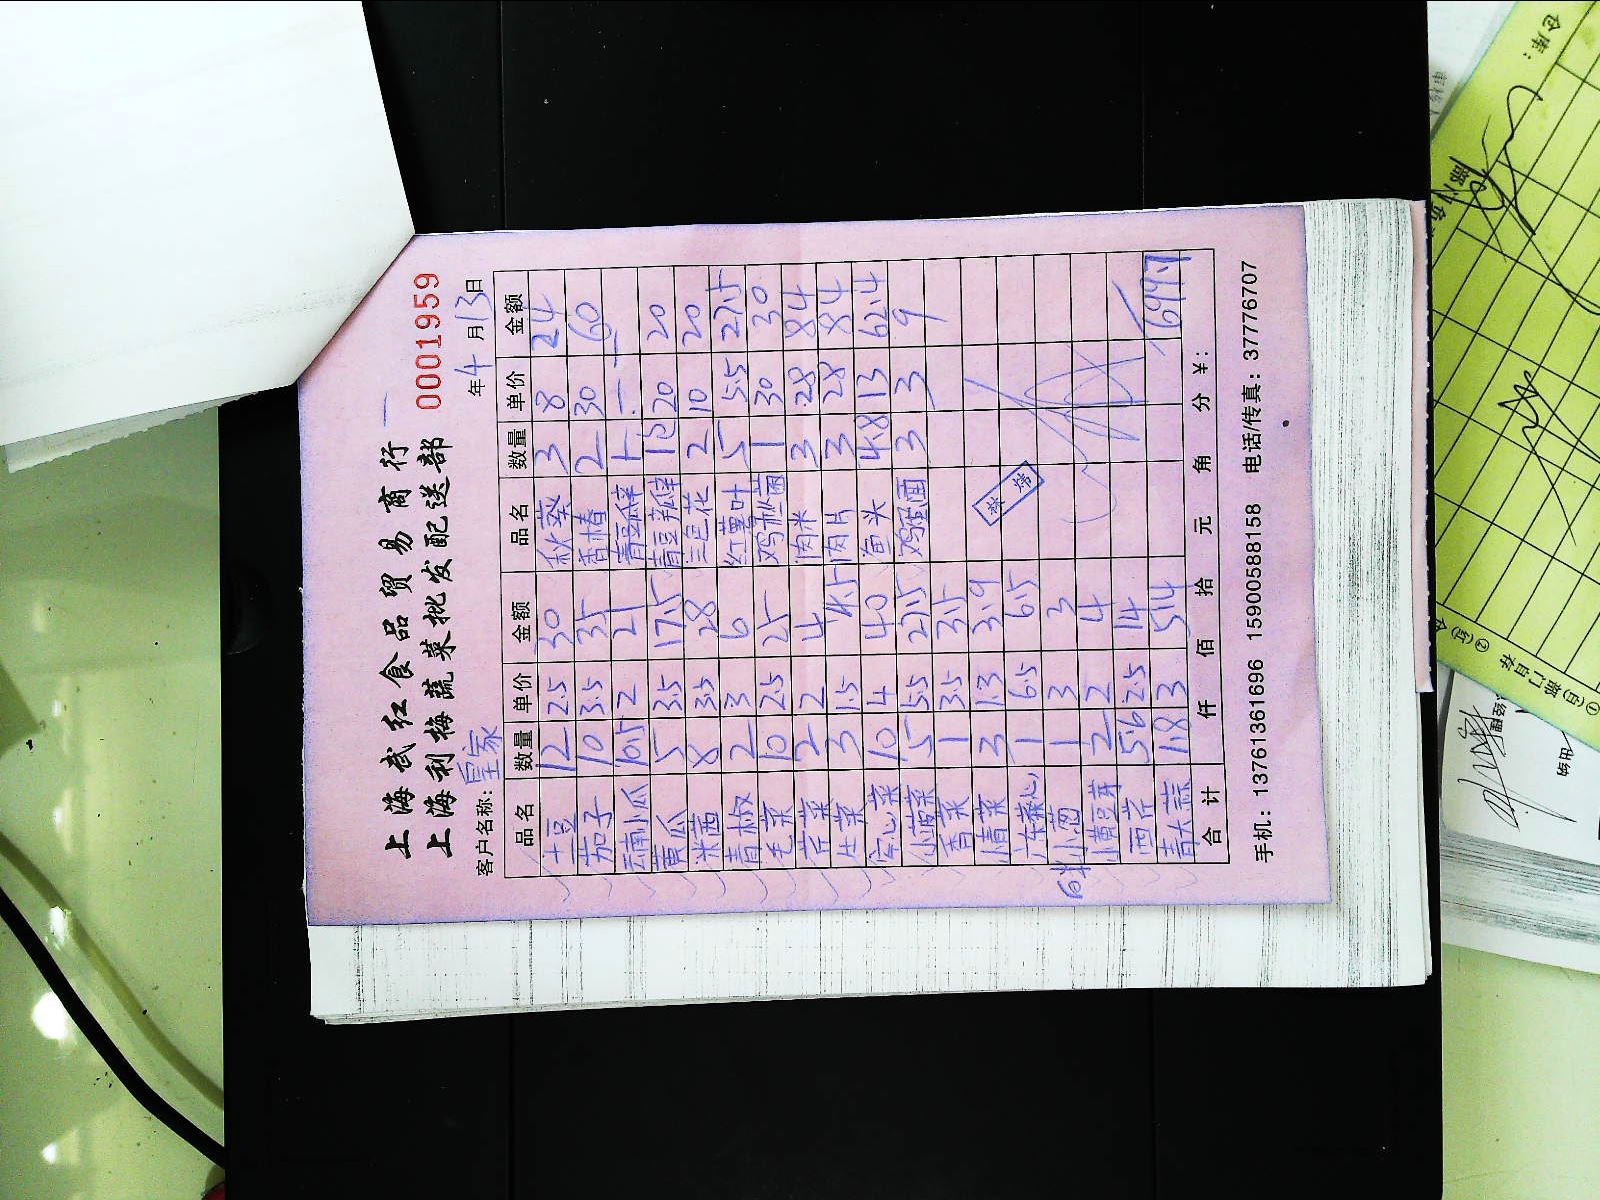 上海武红食品贸易商行
上海利梅蔬菜批发配送部
0001959
客户名称: 皇家 年4月13日
品名 数量 单价 金额 品名 数量 单价 金额
土豆 12 2.5 30 秋葵 3 8 24
茄子 10 3.5 35 香椿 2 30 60
云南小瓜 10.5 2 21 青豆瓣
黄瓜 5 3.5 17.5 青豆瓣 1包 20 20
米茜 8 3.5 28 三色花 2 10 20
青椒 2 3 6 红薯叶 5 5.5 27.5
毛菜 10 2.5 25 鸡枞菌 1 30 30
芹菜 2 2 4 肉米 3 28 84
生菜 3 1.5 4.5 肉片 3 28 84
空心菜 10 4 40 鱼头 4.8 13 62.4
小菠菜 5 5.5 27.5 鸡蛋面 3 3 9
香菜 1 3.5 3.5
小青菜 3 1.3 3.9
广东菜心 1 6.5 6.5
小葱 1 3 3
小黄豆芽 2 2 4
西芹 5.6 2.5 14
青大蒜 1.8 3 5.4
合计 仟 佰 拾 元 角 分 ¥:
手机: 13761361696 15900588158 电话/传真: 37776707
仓库: